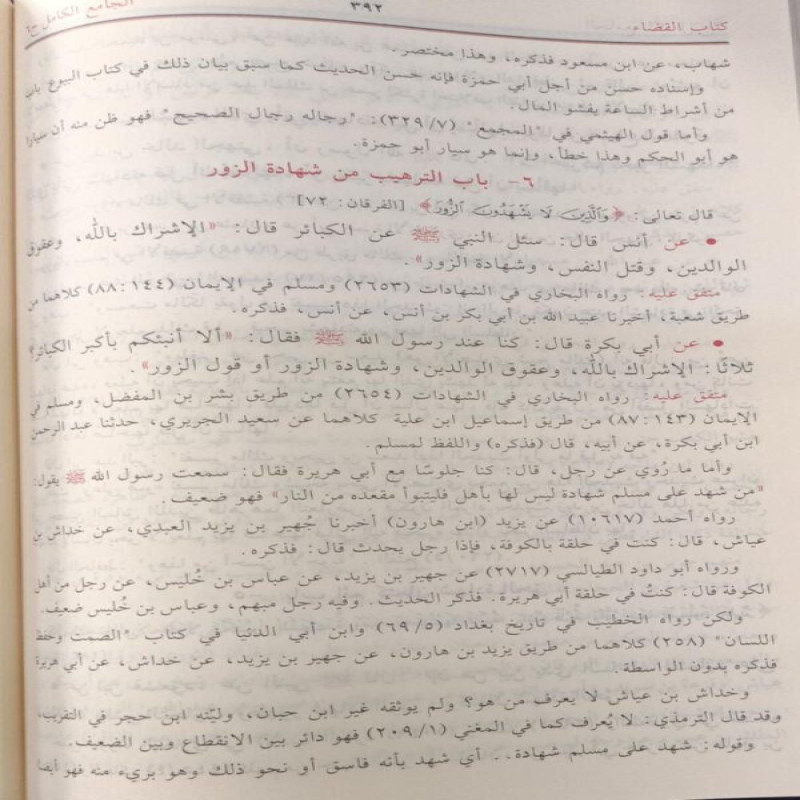 كتاب القضاء ٣٩٢ الجامع الكامل ج٤
شهاب، عن ابن مسعود فذكره، وهذا مختصر.
وإسناده حسن من أجل أبي حمزة فإنه حسن الحديث كما سبق بيان ذلك في كتاب البيوع باب
من أشراط الساعة يفشو المال.
وأما قول الهيثمي في "المجمع" (٣٢٩/٧): "رجاله رجال الصحيح" فهو ظن منه أن سيارا
هو أبو الحكم وهذا خطأ، وإنما هو سيار أبو حمزة.
٦- باب الترهيب من شهادة الزور
قال تعالى: ﴿وَالَّذِينَ لَا يَشْهَدُونَ الزُّورَ﴾ [الفرقان: ٧٢]
• عن أنس قال: سئل النبي ﷺ عن الكبائر قال: "الإشراك بالله، وعقوق
الوالدين، وقتل النفس، وشهادة الزور".
متفق عليه: رواه البخاري في الشهادات (٢٦٥٣) ومسلم في الإيمان (٨٨:١٤٤) كلاهما من
طريق شعبة، أخبرنا عبيد الله بن أبي بكر بن أنس، عن أنس، فذكره.
• عن أبي بكرة قال: كنا عند رسول الله ﷺ فقال: "ألا أنبئكم بأكبر الكبائر؟
ثلاثًا: الإشراك بالله، وعقوق الوالدين، وشهادة الزور أو قول الزور".
متفق عليه: رواه البخاري في الشهادات (٢٦٥٤) من طريق بشر بن المفضل، ومسلم في
الإيمان (٨٧:١٤٣) من طريق إسماعيل ابن علية كلاهما عن سعيد الجريري، حدثنا عبد الرحمن
ابن أبي بكرة، عن أبيه، قال (فذكره) واللفظ لمسلم.
وأما ما رُوي عن رجل، قال: كنا جلوسًا مع أبي هريرة فقال: سمعت رسول الله ﷺ يقول:
"من شهد على مسلم شهادة ليس لها بأهل فليتبوأ مقعده من النار" فهو ضعيف.
رواه أحمد (١٠٦١٧) عن يزيد (ابن هارون) أخبرنا جُهير بن يزيد العبدي، عن خداش بن
عياش، قال: كنت في حلقة بالكوفة، فإذا رجل يحدث قال: فذكره.
ورواه أبو داود الطيالسي (٢٧١٧) عن جهير بن يزيد، عن عباس بن خُليس، عن رجل من أهل
الكوفة قال: كنتُ في حلقة أبي هريرة. فذكر الحديث. وفيه رجل مبهم، وعباس بن خُليس ضعيف.
ولكن رواه الخطيب في تاريخ بغداد (٦٩/٥) وابن أبي الدنيا في كتاب "الصمت وحفظ
اللسان" (٢٥٨) كلاهما من طريق يزيد بن هارون، عن جهير بن يزيد، عن خداش، عن أبي هريرة
فذكره بدون الواسطة.
وخداش بن عياش لا يعرف من هو؟ ولم يوثقه غير ابن حبان، وليّنه ابن حجر في التقريب،
وقد قال الترمذي: لا يُعرف كما في المغني (٢٠٩/١) فهو دائر بين الانقطاع وبين الضعيف.
وقوله: شهد على مسلم شهادة.. أي شهد بأنه فاسق أو نحو ذلك وهو بريء منه فهو أيضا